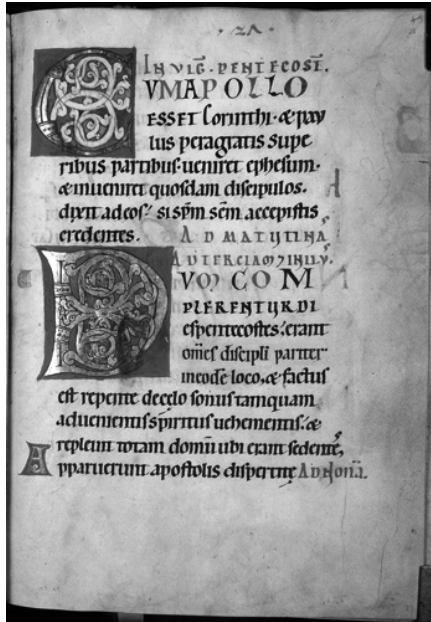 ·21·
IN VIG̅· PENTECOST̅.
CVM APOLLO
ESSET Corinthi· & pau
lus peragratis supe
rioribus partibus· ueniret ephesum·
& inueniret quosdam discipulos.
dixit ad eos; si sp̅m sc̅m accepistis
credentes. AD MATVTINA̅
AD TERCIAM IN DIE
DVM COM
PLERENTUR DI
es pentecostes; erant
om̅s discipli pariter
in eode̅ loco, & factus
est repente de cęlo sonus tamquam
aduenientis sp̅iritus uehementis; &
repleuit totam domu̅ ubi erant sedentes,
Apparuerunt apostolis dispertitę AD NONA̅.